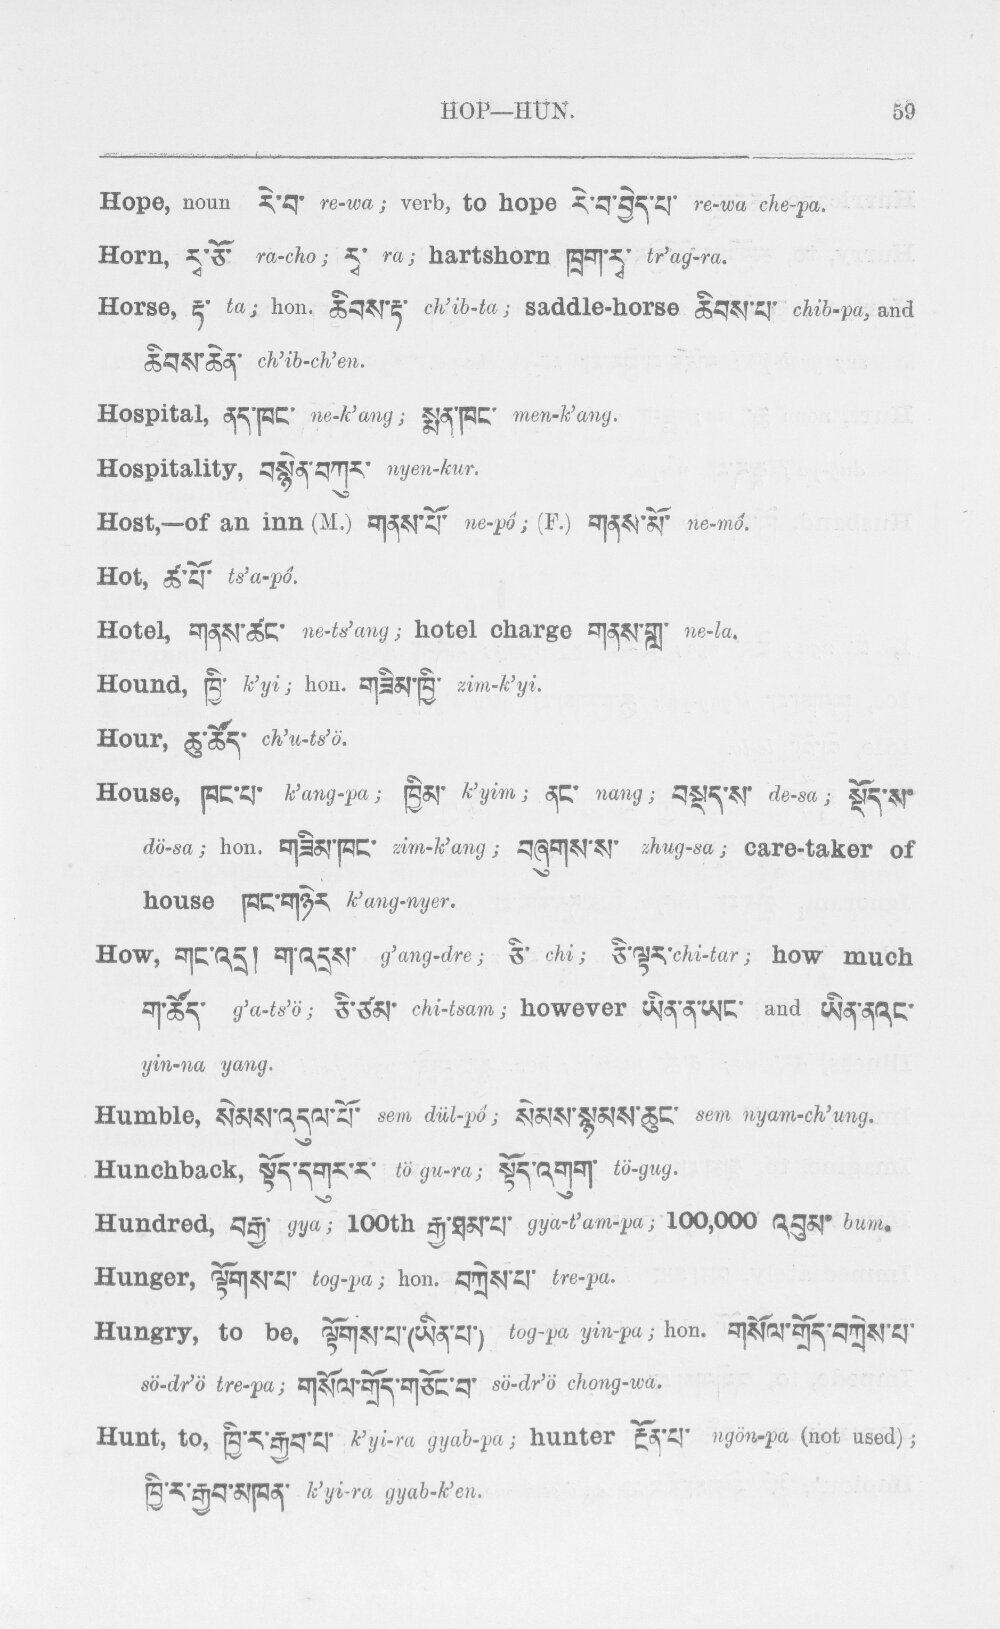 HOP—HUN. 59
Hope, noun རེ་བ་ re-wa; verb, to hope རེ་བ་བྱེད་པ་ re-wa che-pa.
Horn, རྭ་ཅོ་ ra-cho; རྭ་ ra; hartshorn ཁྲག་རྭ་ tr'ag-ra.
Horse, རྟ་ ta; hon. ཆིབས་རྟ་ ch'ib-ta; saddle-horse ཆིབས་པ་ chib-pa, and
ཆིབས་ཆེན་ ch'ib-ch'en.
Hospital, ནད་ཁང་ ne-k'ang; སྨན་ཁང་ men-k'ang.
Hospitality, བསྙེན་བཀུར་ nyen-kur.
Host,—of an inn (M.) གནས་པོ་ ne-pó; (F.) གནས་མོ་ ne-mó.
Hot, ཚ་པོ་ ts'a-pó.
Hotel, གནས་ཚང་ ne-ts'ang; hotel charge གནས་གླ་ ne-la.
Hound, ཁྱི་ k'yi; hon. གཟིམ་ཁྱི་ zim-k'yi.
Hour, ཆུ་ཚོད་ ch'u-ts'ö.
House, ཁང་པ་ k'ang-pa; ཁྱིམ་ k'yim; ནང་ nang; བསྡད་ས་ de-sa; སྡོད་ས་
dö-sa; hon. གཟིམ་ཁང་ zim-k'ang; བཞུགས་ས་ zhug-sa; care-taker of
house ཁང་གཉེར k'ang-nyer.
How, གང་འདྲ། ག་འདྲས་ g'ang-dre; ཅི་ chi; ཅི་ལྟར་ chi-tar; how much
ག་ཚོད་ g'a-ts'ö; ཅི་ཙམ་ chi-tsam; however ཡིན་ན་ཡང་ and ཡིན་ནའང་
yin-na yang.
Humble, སེམས་འདུལ་པོ་ sem dül-pó; སེམས་སྙམས་ཆུང་ sem nyam-ch'ung.
Hunchback, སྟོད་དགུར་ར་ tö gu-ra; སྟོད་འགུག་ tö-gug.
Hundred, བརྒྱ་ gya; 100th རྒྱ་ཐམ་པ་ gya-t'am-pa; 100,000 འབུམ་ bum.
Hunger, ལྟོགས་པ་ tog-pa; hon. བཀྲེས་པ་ tre-pa.
Hungry, to be, ལྟོགས་པ་(ཡིན་པ་) tog-pa yin-pa; hon. གསོལ་གྲོད་བཀྲེས་པ་
sö-dr'ö tre-pa; གསོལ་གྲོད་གཅོང་བ་ sö-dr'ö chong-wa.
Hunt, to, ཁྱི་ར་རྒྱབ་པ་ k'yi-ra gyab-pa; hunter རྔོན་པ་ ngön-pa (not used);
ཁྱི་ར་རྒྱབ་མཁན་ k'yi-ra gyab-k'en.